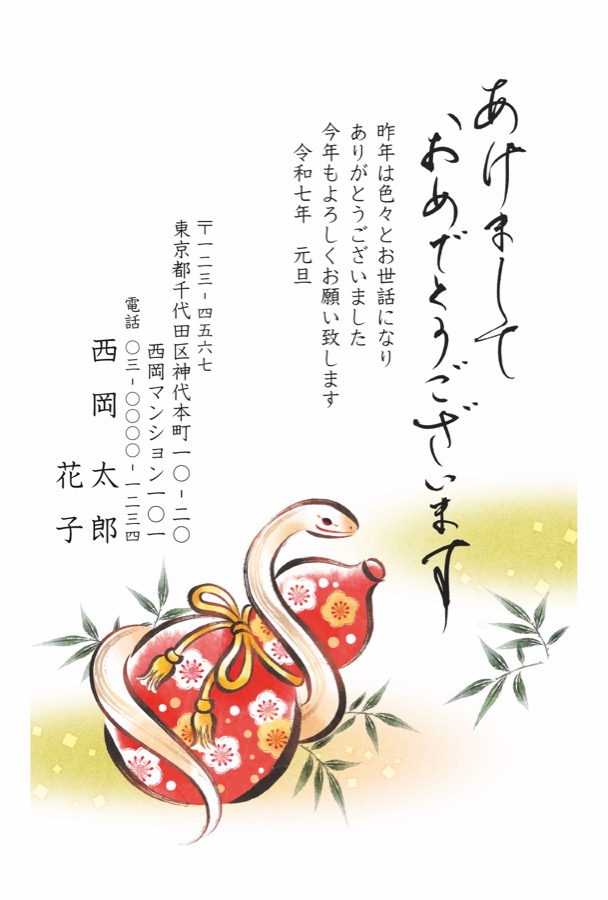 あけまして
おめでとうございます
昨年は色々とお世話になり
ありがとうございました
今年もよろしくお願い致します
令和七年　元旦
〒一二三-四五六七
東京都千代田区神代本町一〇-二〇
西岡マンション一〇一
電話　〇三-〇〇〇〇-一二三四
西岡　太郎
花子